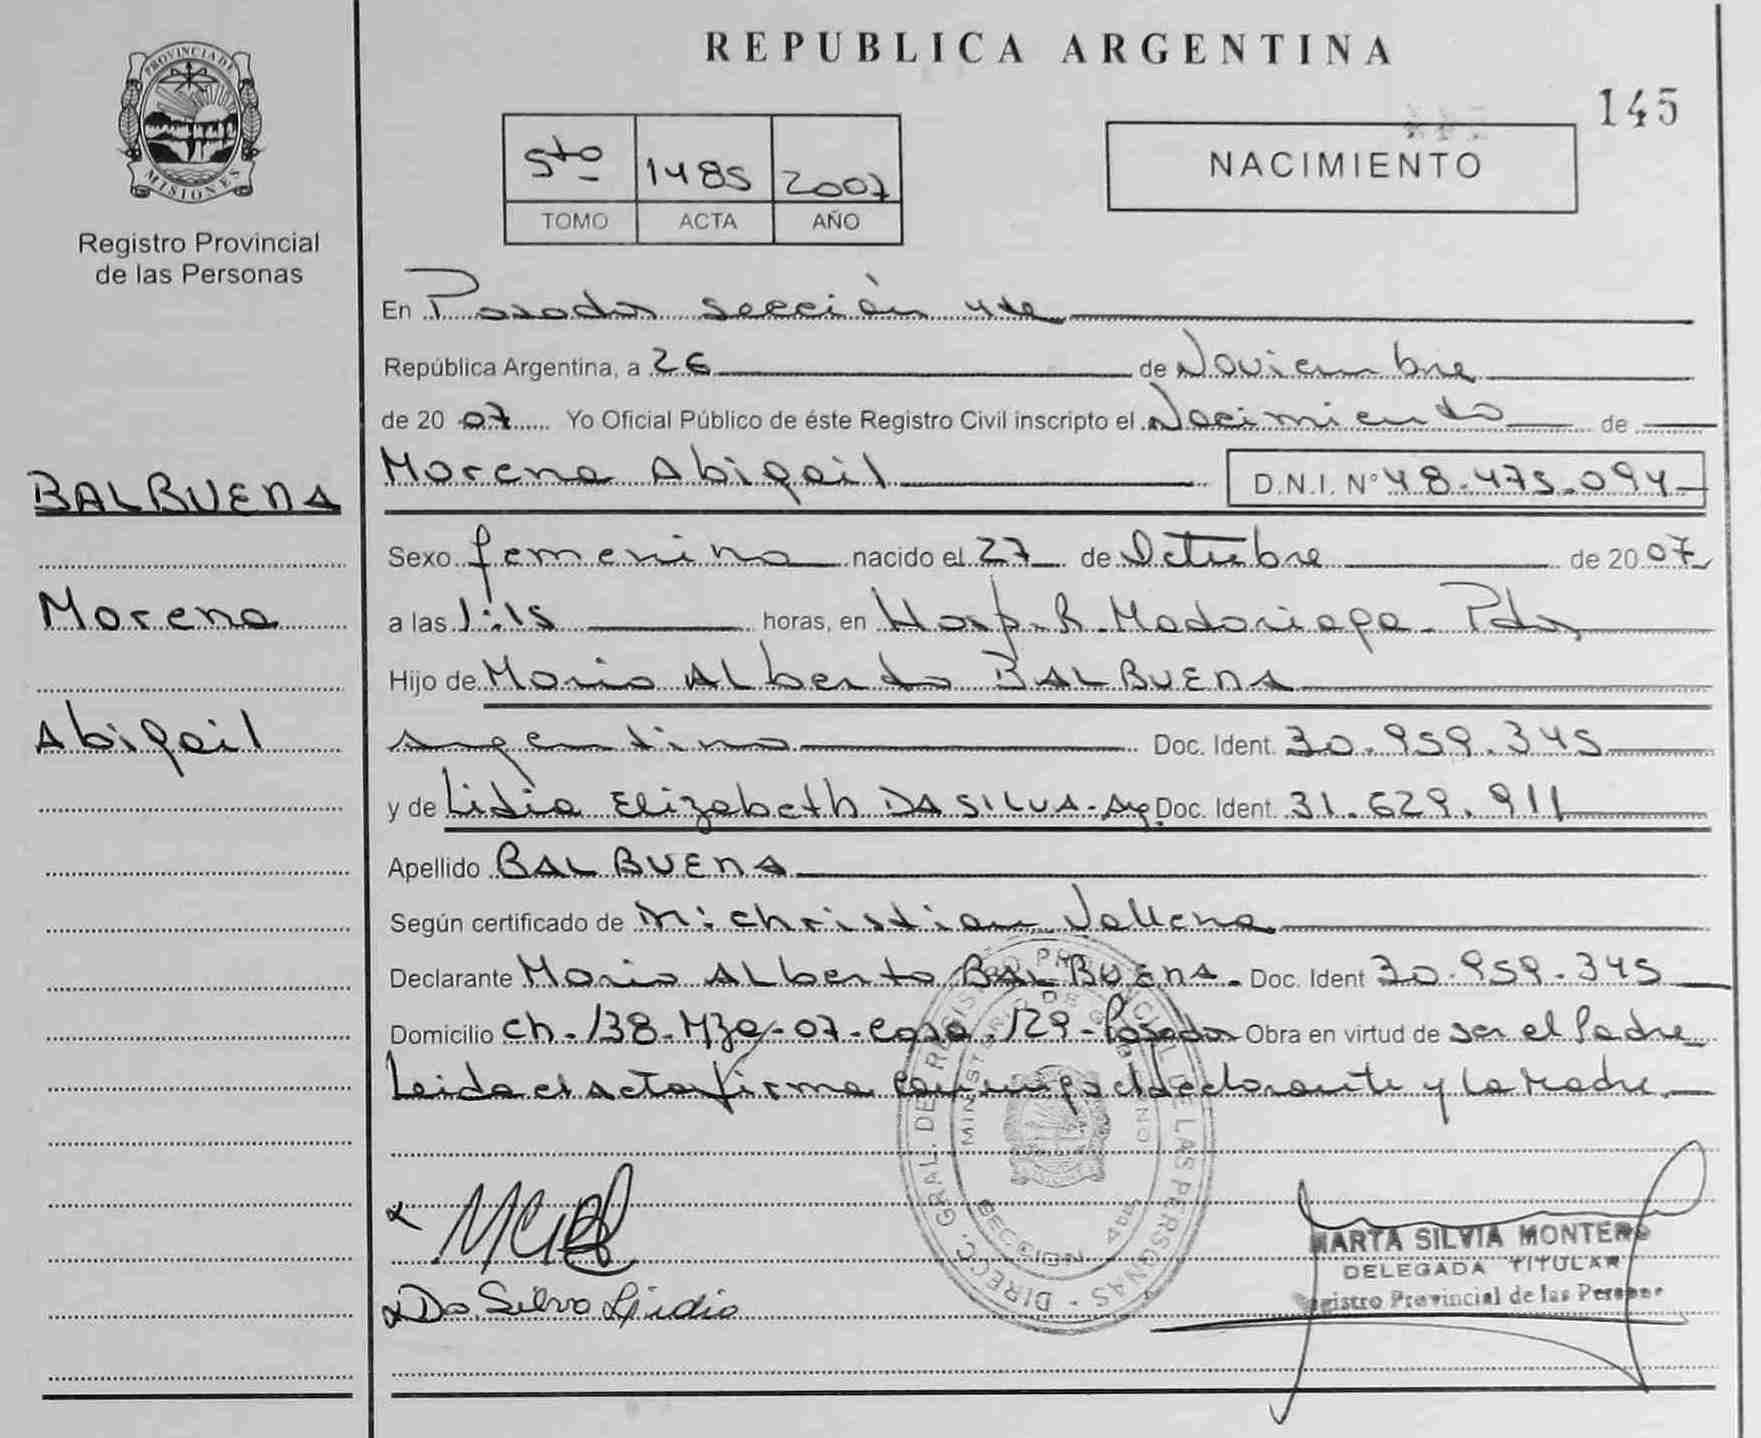 REPUBLICA ARGENTINA
145
PROVINCIA DE
MISIONES
Registro Provincial
de las Personas
5to 1485 2007
TOMO ACTA AÑO
NACIMIENTO
En Posadas sección 4ta
República Argentina, a 26 de Noviembre
de 20 07 Yo Oficial Público de éste Registro Civil inscripto el Nacimiento de
Morena Abigail D.N.I. N° 48.475.094
BALBUENA
Morena
Abigail
Sexo femenino nacido el 27 de Octubre de 20 07
a las 1:15 horas, en Hosp. R. Madariaga - Pdas
Hijo de Mario Alberto BALBUENA
argentino Doc. Ident. 30.959.345
y de Lidia Elizabeth DA SILVA - Arg. Doc. Ident. 31.629.911
Apellido BALBUENA
Según certificado de Christian
Declarante Mario Alberto BALBUENA - Doc. Ident 30.959.345
Domicilio Ch - 138 - Mza - 07 - casa - 129 - Posadas Obra en virtud de ser el Padre
Leida el acta firma conmigo el declarante y la Madre.
DIRECC. GRAL. DEL REGISTRO PROVINCIAL DE LAS PERSONAS
MINISTERIO DE GOBIERNO
SECCION 4ta
Da Silva Lidia
MARTA SILVIA MONTERO
DELEGADA TITULAR
Registro Provincial de las Personas